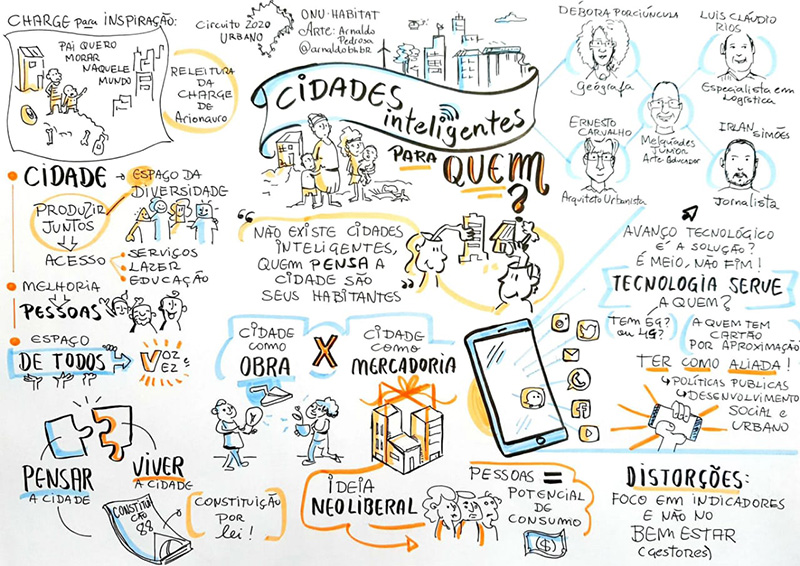 CHARGE para INSPIRAÇÃO:
PAI QUERO
MORAR
NAQUELE
MUNDO
RELEITURA
DA
CHARGE
DE
Arionauro
Circuito 2020
URBANO
ONU-HABITAT
Arte: Arnaldo
Pedrosa
@arnaldobhbr
CIDADES
inteligentes
PARA
QUEM
?
DÉBORA PORCIÚNCULA
Geógrafa
LUIS CLÁUDIO
RIOS
Especialista em
Logística
ERNESTO
CARVALHO
Arquiteto Urbanista
Melquíades
JÚNIOR
Arte Educador
IRLAN
SIMÕES
Jornalista
CIDADE → ESPAÇO DA
DIVERSIDADE
PRODUZIR
JUNTOS
ACESSO
SERVIÇOS
LAZER
EDUCAÇÃO
MELHORIA
PESSOAS
ESPAÇO
DE TODOS
VOZ E
VEZ
"NÃO EXISTE CIDADES
INTELIGENTES,
QUEM PENSA A
CIDADE SÃO
SEUS HABITANTES"
AVANÇO TECNOLÓGICO
É A SOLUÇÃO?
É MEIO, NÃO FIM!
TECNOLOGIA SERVE
A QUEM?
TEM 5G?
OU 4G?
A QUEM TEM
CARTÃO
POR APROXIMAÇÃO
TER COMO ALIADA!
POLÍTICAS PUBLICAS
DESENVOLVIMENTO
SOCIAL e
URBANO
CIDADE
COMO
OBRA
X
CIDADE
COMO
MERCADORIA
PENSAR
A CIDADE
VIVER
A CIDADE
CONSTITUI
CÃO
88
[CONSTITUIÇÃO
POR
lei!]
IDEIA
NEOLIBERAL
PESSOAS =
POTENCIAL
DE
CONSUMO
$
DISTORÇÕES:
FOCO EM INDICADORES
E NÃO NO
BEM ESTAR
(Gestores)